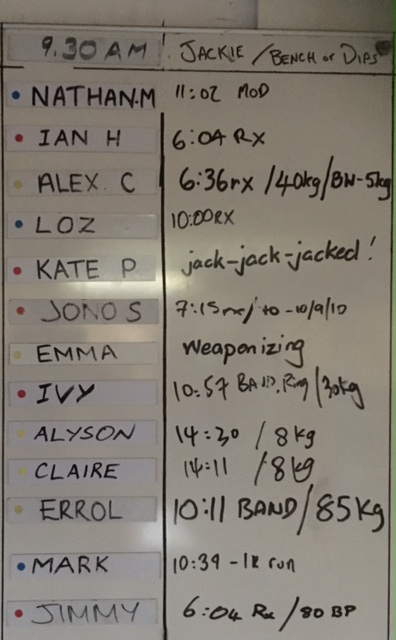 9.30 AM JACKIE / BENCH or DIPS
NATHAN.M 11:02 MOD
IAN H 6:04 RX
ALEX. C 6:36rx /40kg/BW-5kg
LOZ 10:00RX
KATE P jack-jack-jacked!
JONO S 7:15 /10-10/9/10
EMMA Weaponizing
IVY 10:57 BAND. Ring/30kg
ALYSON 14:20 / 8kg
CLAIRE 14:11 /8kg
ERROL 10:11 BAND/85Kg
MARK 10:39 -1k run
JIMMY 6:04 Rx /80 BP